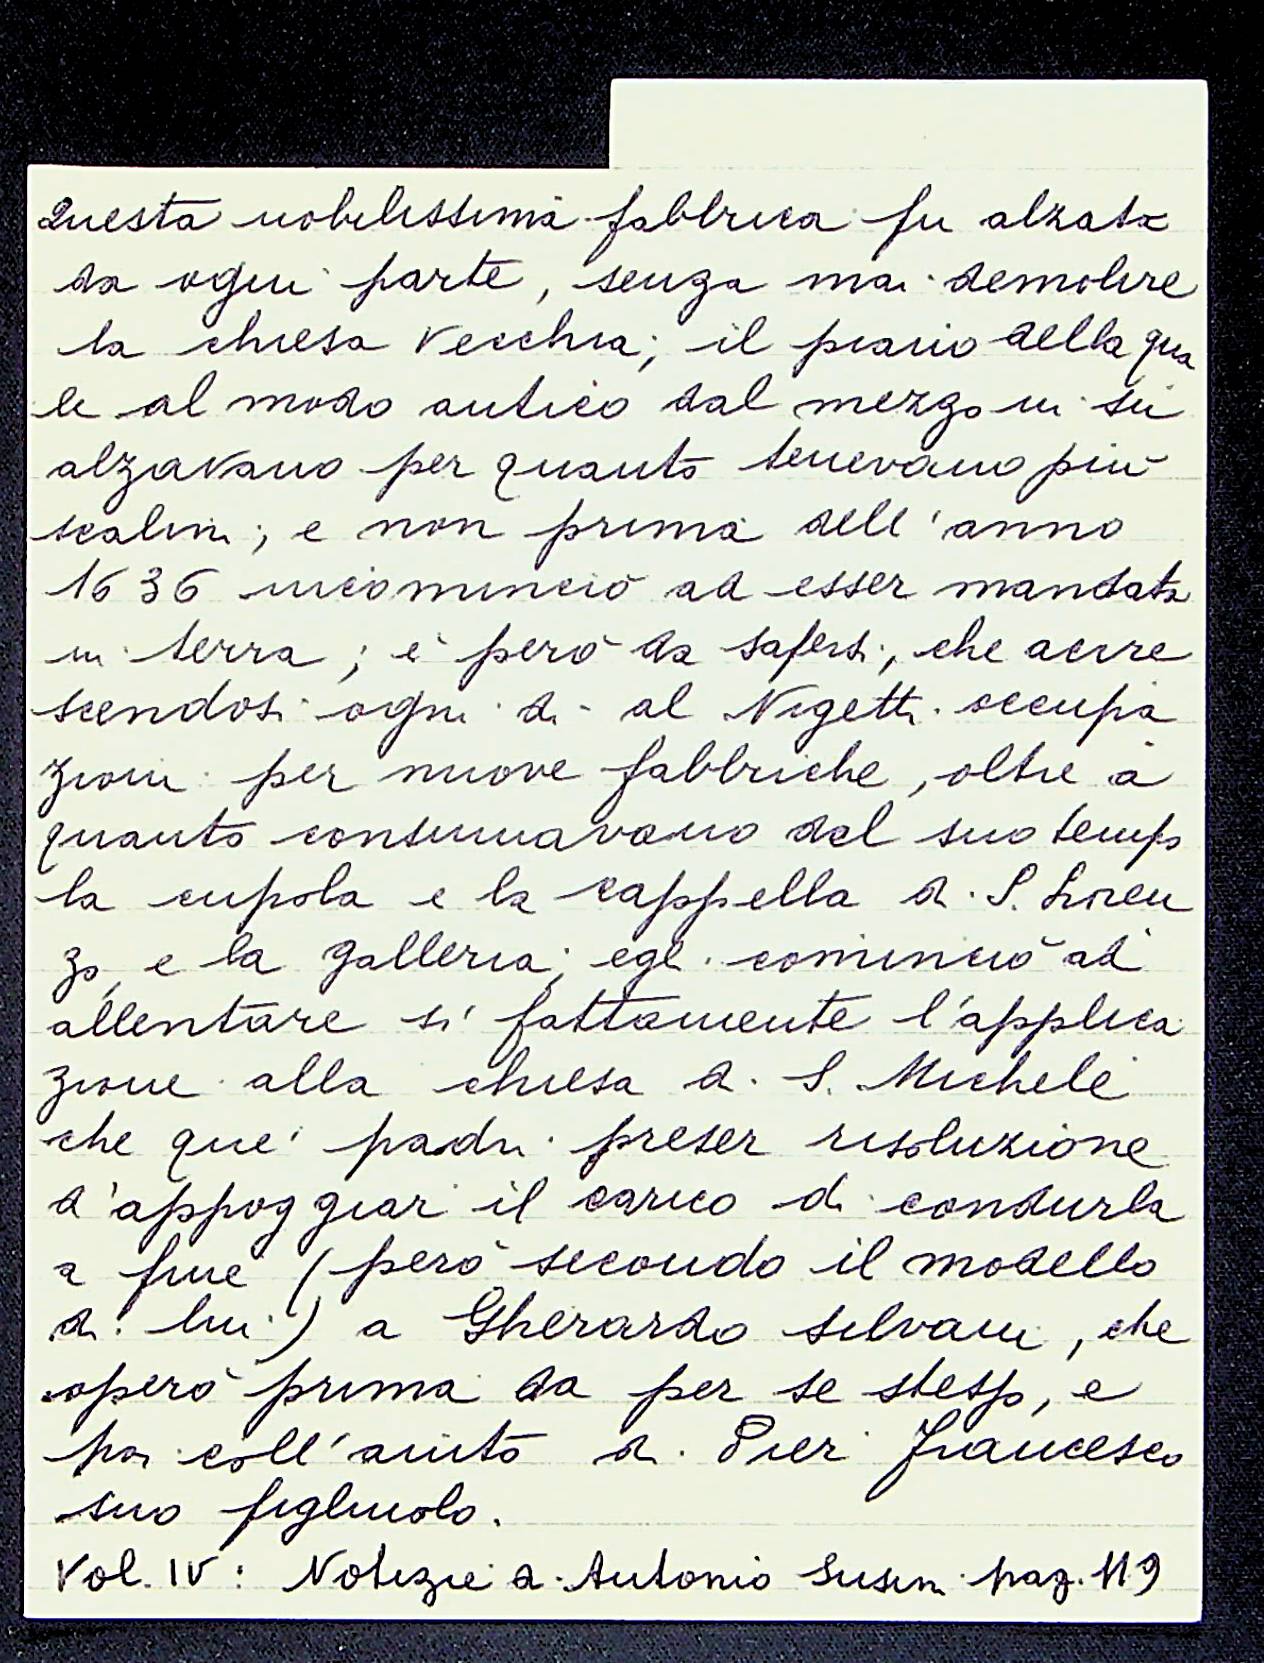 Questa nobilissima fabbrica fu alzata
da ogni parte, senza mai demolire
la chiesa vecchia; il piano della qua
le al modo antico dal mezzo in su
alzavano per quanto tenevano più
scalini; e non prima dell'anno
1636 incominciò ad esser mandata
in terra; è però da sapersi, che accre
scendosi ogni dì al Nigetti occupa
zioni per nuove fabbriche, oltre a
quanto consumavano del suo tempo
la cupola e la cappella di S. Loren
zo, e la galleria; egli cominciò ad
allentare sì fattamente l'applica
zione alla chiesa di S. Michele
che que' padri preser risoluzione
d'appoggiar il carico di condurla
a fine (però secondo il modello
di lui) a Gherardo Silvani, che
operò prima da per se stesso, e
poi coll'aiuto di Pier Francesco
suo figliuolo.
Vol. IV: Notizie di Antonio Susini pag. 119